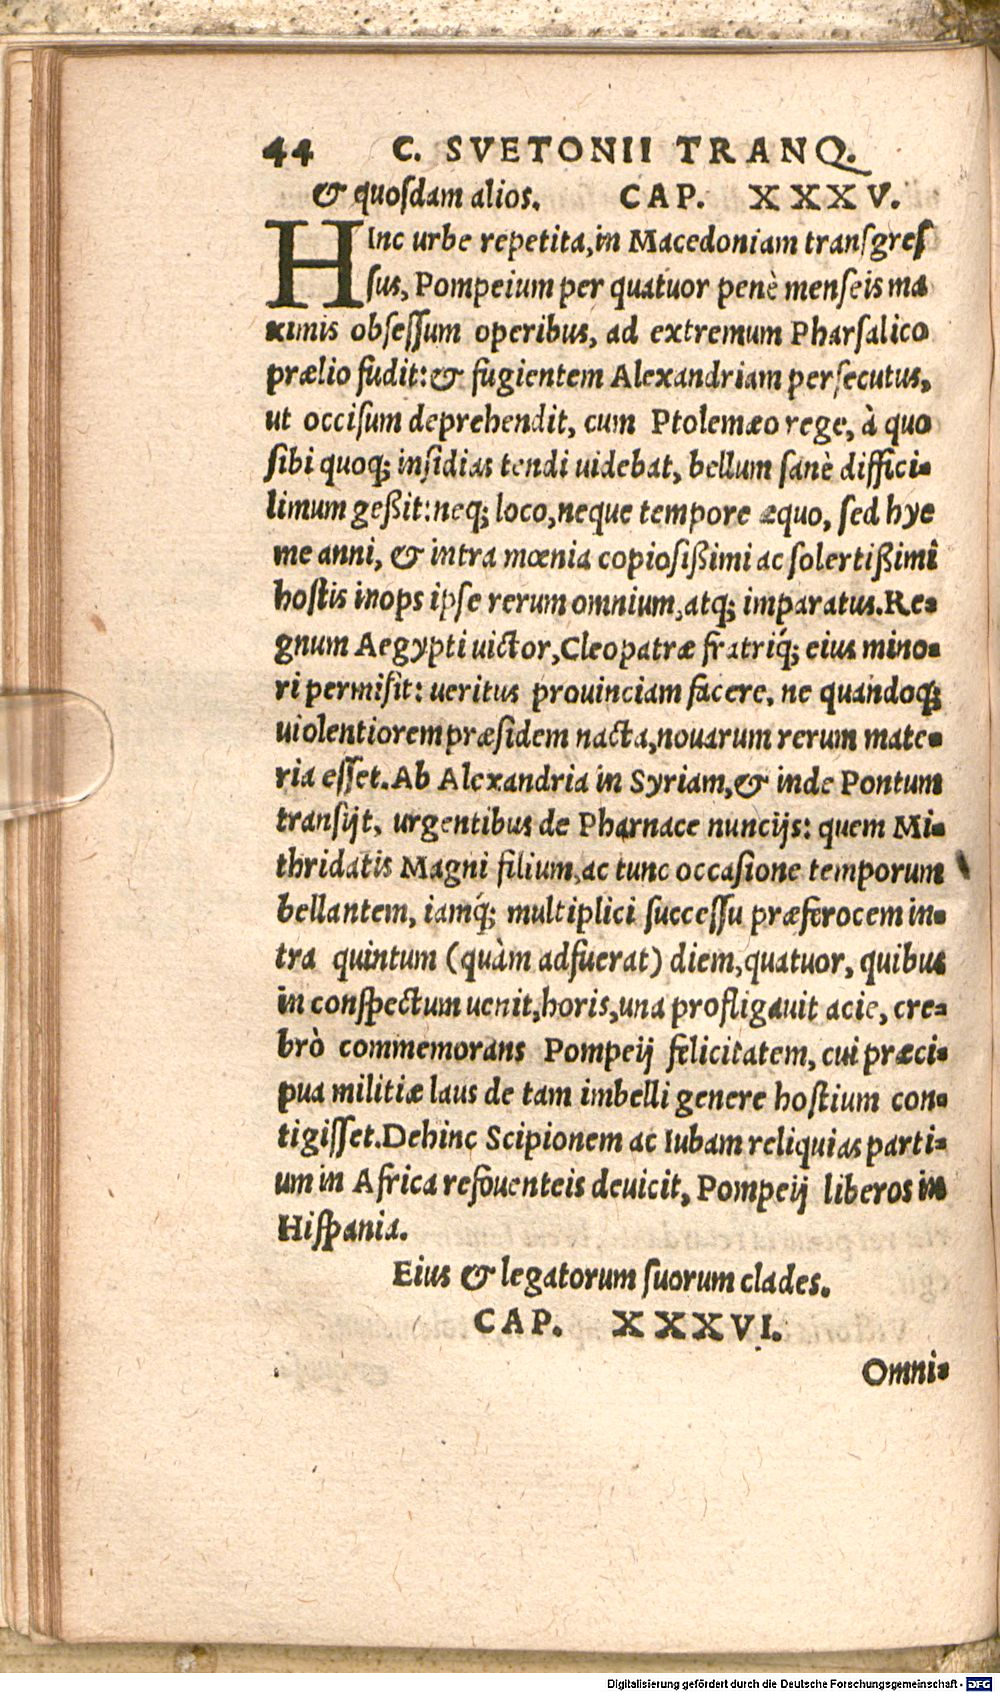 44 C. SVETONII TRANQ.
& quoſdam alios. CAP. XXXV.
HInc urbe repetita, in Macedoniam tranſgreſ
ſus, Pompeium per quatuor penè menſeis ma
ximis obſeſſum operibus, ad extremum Pharſalico
prælio fudit: & fugientem Alexandriam perſecutus,
ut occiſum deprehendit, cum Ptolemæo rege, à quo
ſibi quoq; inſidias tendi uidebat, bellum ſanè diffici-
limum geßit: neq; loco, neque tempore æquo, ſed hye
me anni, & intra mœnia copioſißimi ac ſolertißimi
hoſtis inops ipſe rerum omnium, atq; imparatus. Re-
gnum Aegypti uictor, Cleopatræ fratriq́; eius mino-
ri permiſit: ueritus prouinciam facere, ne quandoq;
uiolentiorem præſidem nacta, nouarum rerum mate-
ria eſſet. Ab Alexandria in Syriam, & inde Pontum
tranſijt, urgentibus de Pharnace nuncijs: quem Mi-
thridatis Magni filium, ac tunc occaſione temporum
bellantem, iamq́; multiplici ſucceſſu præferocem in-
tra quintum (quàm adfuerat) diem, quatuor, quibus
in conſpectum uenit, horis, una profligauit acie, cre-
brò commemorans Pompeij felicitatem, cui præci-
pua militiæ laus de tam imbelli genere hoſtium con-
tigiſſet. Dehinc Scipionem ac Iubam reliquias parti-
um in Africa refouenteis deuicit, Pompeij liberos in
Hiſpania.
Eius & legatorum ſuorum clades.
CAP. XXXVI.
Omni-
Digitalisierung gefördert durch die Deutsche Forschungsgemeinschaft - DFG